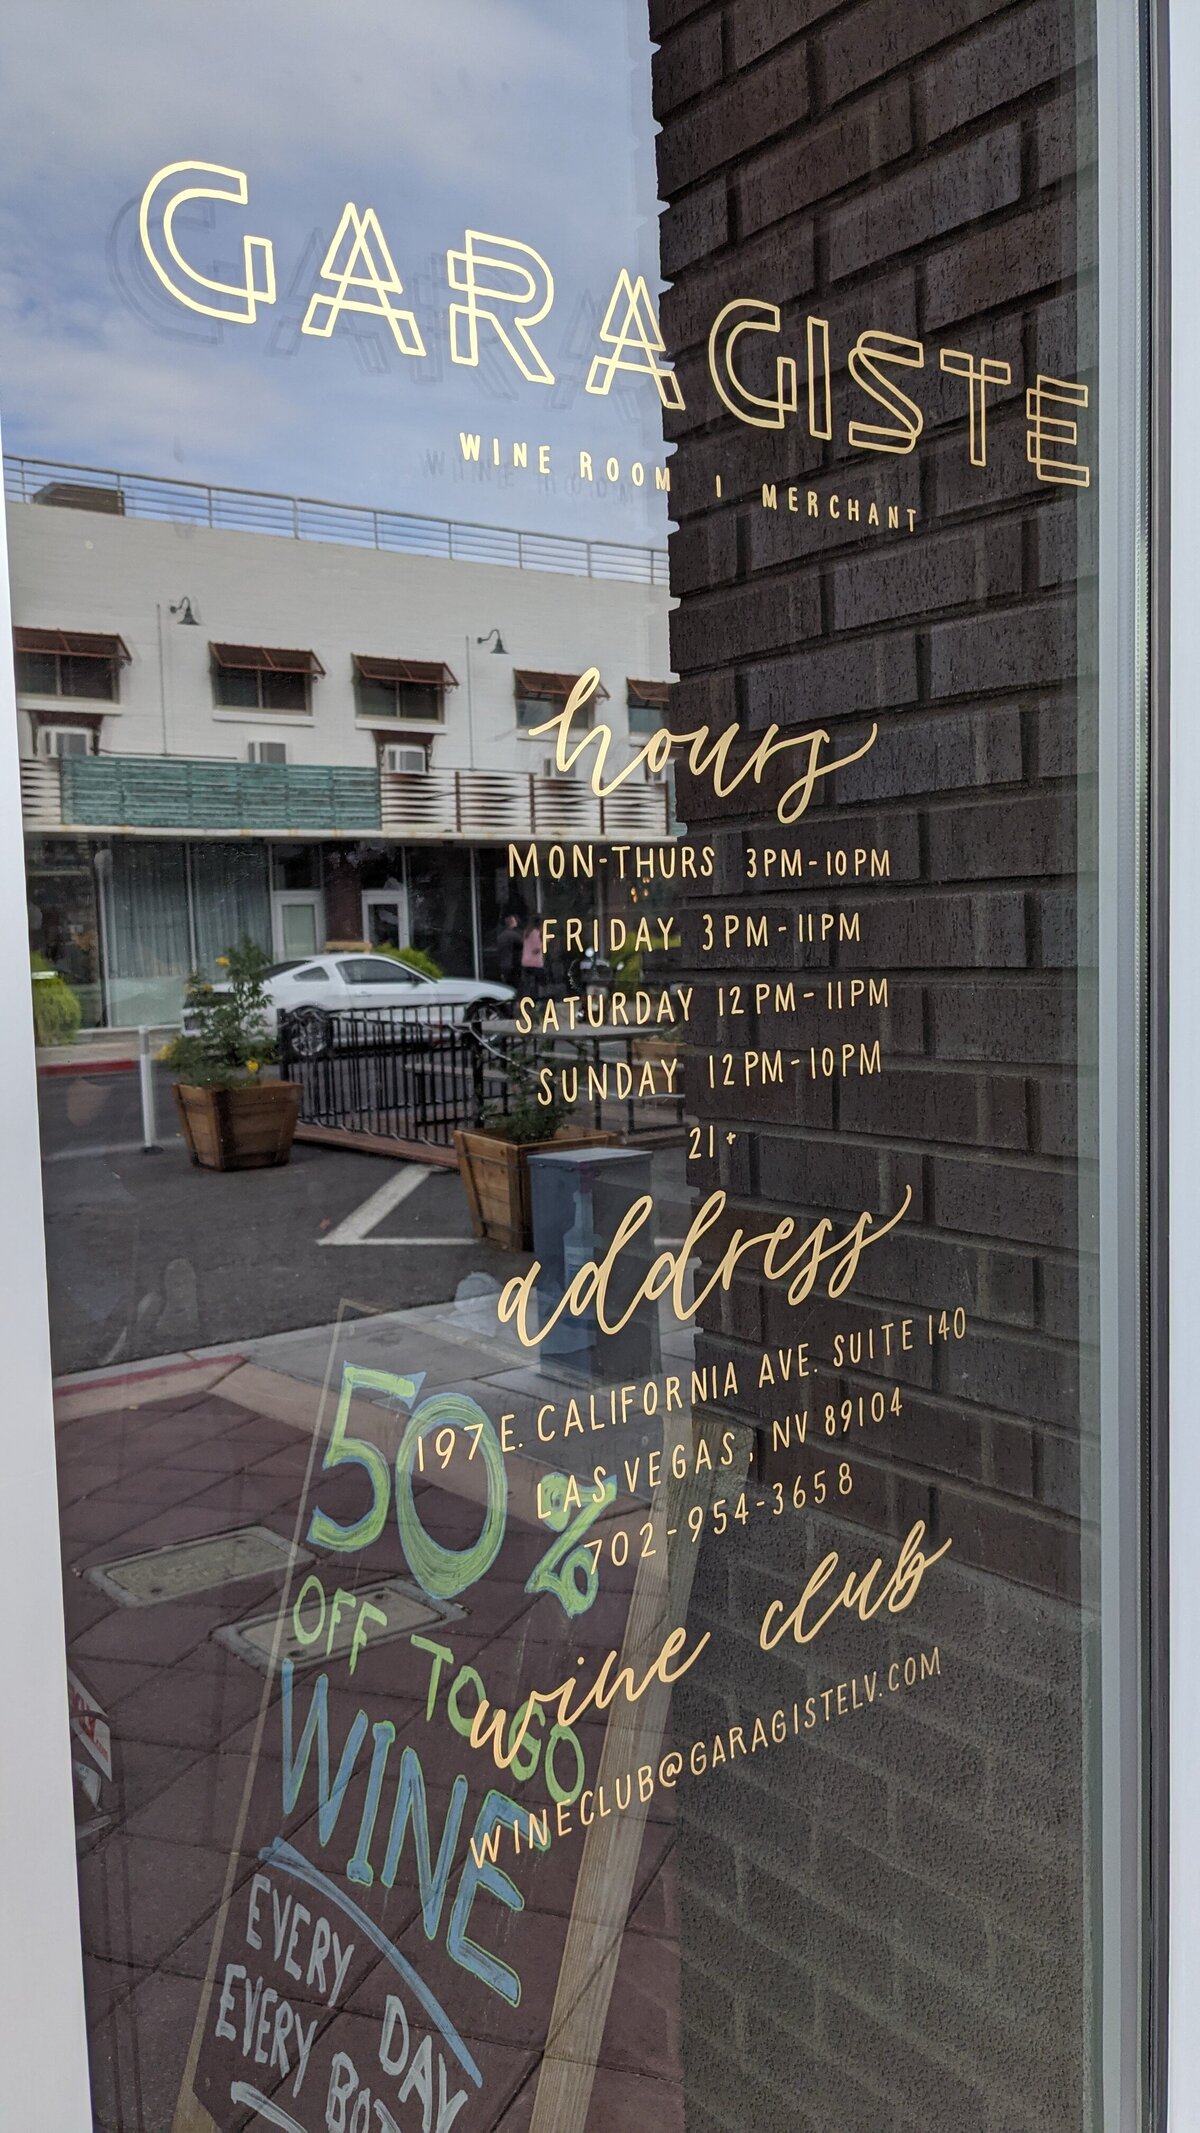 GARAGISTE
WINE ROOM | MERCHANT
hours
MON-THURS 3PM-10PM
FRIDAY 3PM-11PM
SATURDAY 12PM-11PM
SUNDAY 12PM-10PM
21+
address
197 E. CALIFORNIA AVE. SUITE 140
LAS VEGAS, NV 89104
702-954-3658
wine club
WINECLUB@GARAGISTELV.COM
50%
OFF TO GO
WINE
EVERY DAY
EVERY